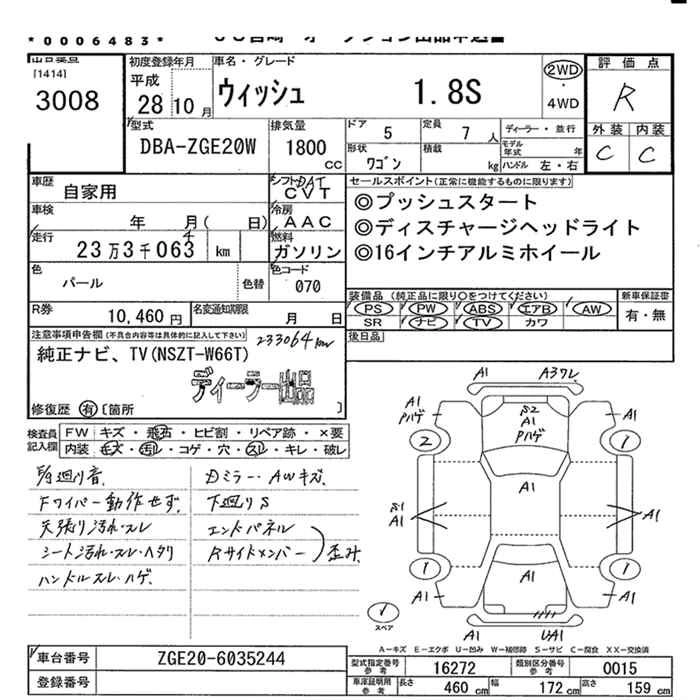 *0006483*
[1414]
3008
初度登録年月
平成
28年10月
車名・グレード
ウィッシュ 1.8S
2WD
・
4WD
評価点
R
外装 内装
C C
型式
DBA-ZGE20W
排気量
1800
CC
ドア 5
定員 7人
形状 ワゴン
積載 kg
ディーラー・並行
モデル年式 年
ハンドル 左・右
車歴 自家用
シフト DAT
CVT
車検 年 月( 日)
冷房 AAC
走行 23万3千063 km
燃料 ガソリン
色 パール
色替
色コード 070
R券 10,460円
名変通知期限 月 日
セールスポイント(正常に機能するものに限ります)
◎プッシュスタート
◎ディスチャージヘッドライト
◎16インチアルミホイール
装備品(純正品に限り〇をつけてください)
PS PW ABS エアB AW
SR ナビ TV カワ
新車保証書
有・無
後日品
注意事項申告欄(不具合内容等は具体的に記入して下さい)
233064km
純正ナビ、TV(NSZT-W66T)
ディーラー出品
修復歴 有 〔箇所 〕
検査員記入欄
FW キズ・飛石・ヒビ割・リペア跡・×要
内装 キズ・汚レ・コゲ・穴・スレ・キレ・破レ
Fワイパー動作せず
天張り汚れ・スレ
シート汚れ・スレ・ヘタリ
ハンドルスレ・ハゲ
Dミラー・AWキズ
下廻りS
エンドパネル
Rサイドメンバー
歪み
A1
A1
A1
Pハゲ
A1
Pハゲ
A1
2
1
A1
A1
A1
A1
1
1
A1
A1
A1
A1
UA1
スペア
A-キズ E-エクボ U-凹み W-補修跡 S-サビ C-腐食 XX-交換済
車台番号 ZGE20-6035244
登録番号
型式指定番号 参考 16272
類別区分番号 参考 0015
車庫証明用 参考
長さ 460 cm
幅 172 cm
高さ 159 cm